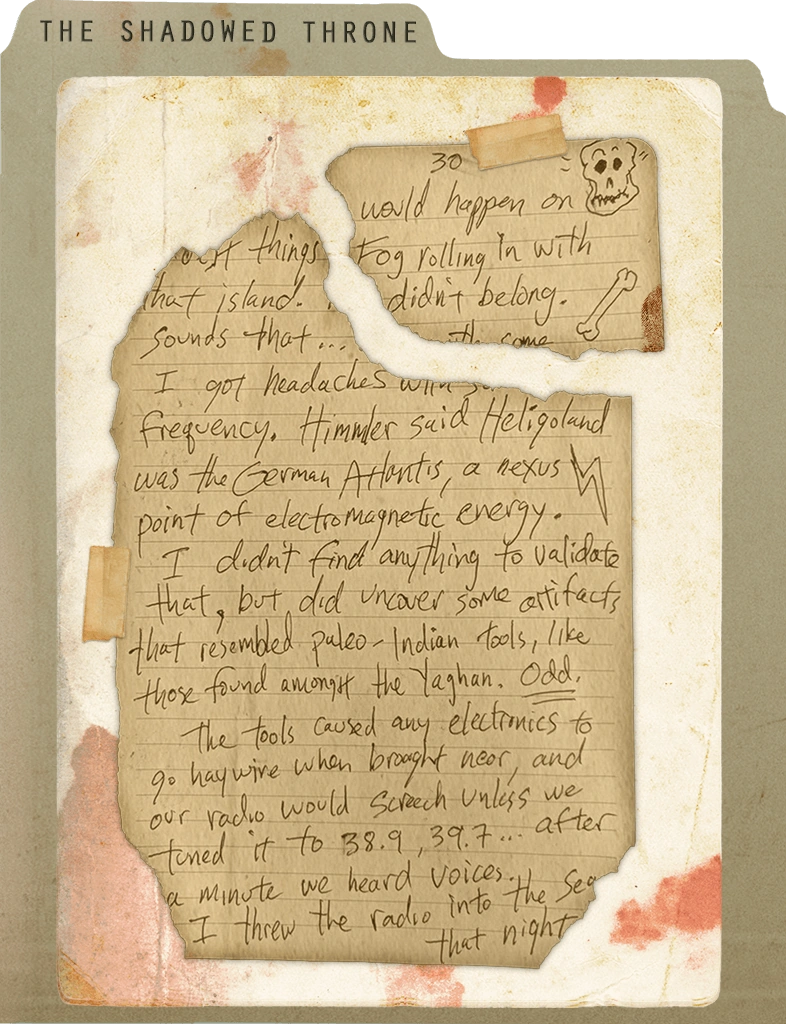 THE SHADOWED THRONE
30
would happen on
things Fog rolling in with
that island. didn't belong.
Sounds that... with some
I got headaches with
frequency. Himmler said Heligoland
was the German Atlantis, a nexus
point of electromagnetic energy.
I didn't find anything to validate
that, but did uncover some artifacts
that resembled paleo-Indian tools, like
those found amongst the Yaghan. Odd.
The tools caused any electronics to
go haywire when brought near, and
our radio would screech unless we
tuned it to 38.9, 39.7... after
a minute we heard voices.
I threw the radio into the Sea
that night